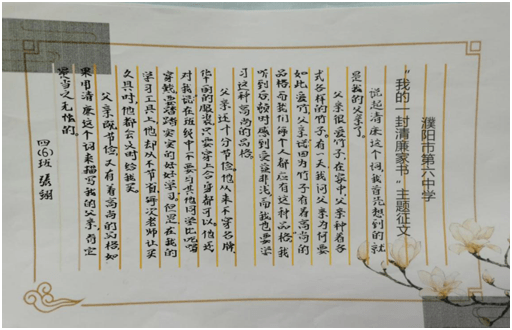 濮阳市第六中学
“我的一封清廉家书”主题征文
说起清廉这个词,我首先想到的就
是我的父亲了。
父亲很爱竹子,在家中,父亲种着各
式各样的竹子。有一天我问父亲为何要
如此爱竹,父亲说因为竹子有着高尚的
品格,而我们每个人都应有这种品格。我
听到后顿时感到受益匪浅,而我也要学
习这种高尚的品格。
父亲还十分节俭,他从来不穿名牌
华丽的服装,只要穿上合身都可以,他总
对我说在班级中不要与其他同学比吃
穿,要踏踏实实的好好学习。但是在我的
学习工具上他却从不节省,每次老师让买
文具时,他都会及时给我买。
父亲既节俭,又有着高尚的品格,如
果用清廉这个词来描写我的父亲,肯定
是当之无愧的。
四(6)班 张翔